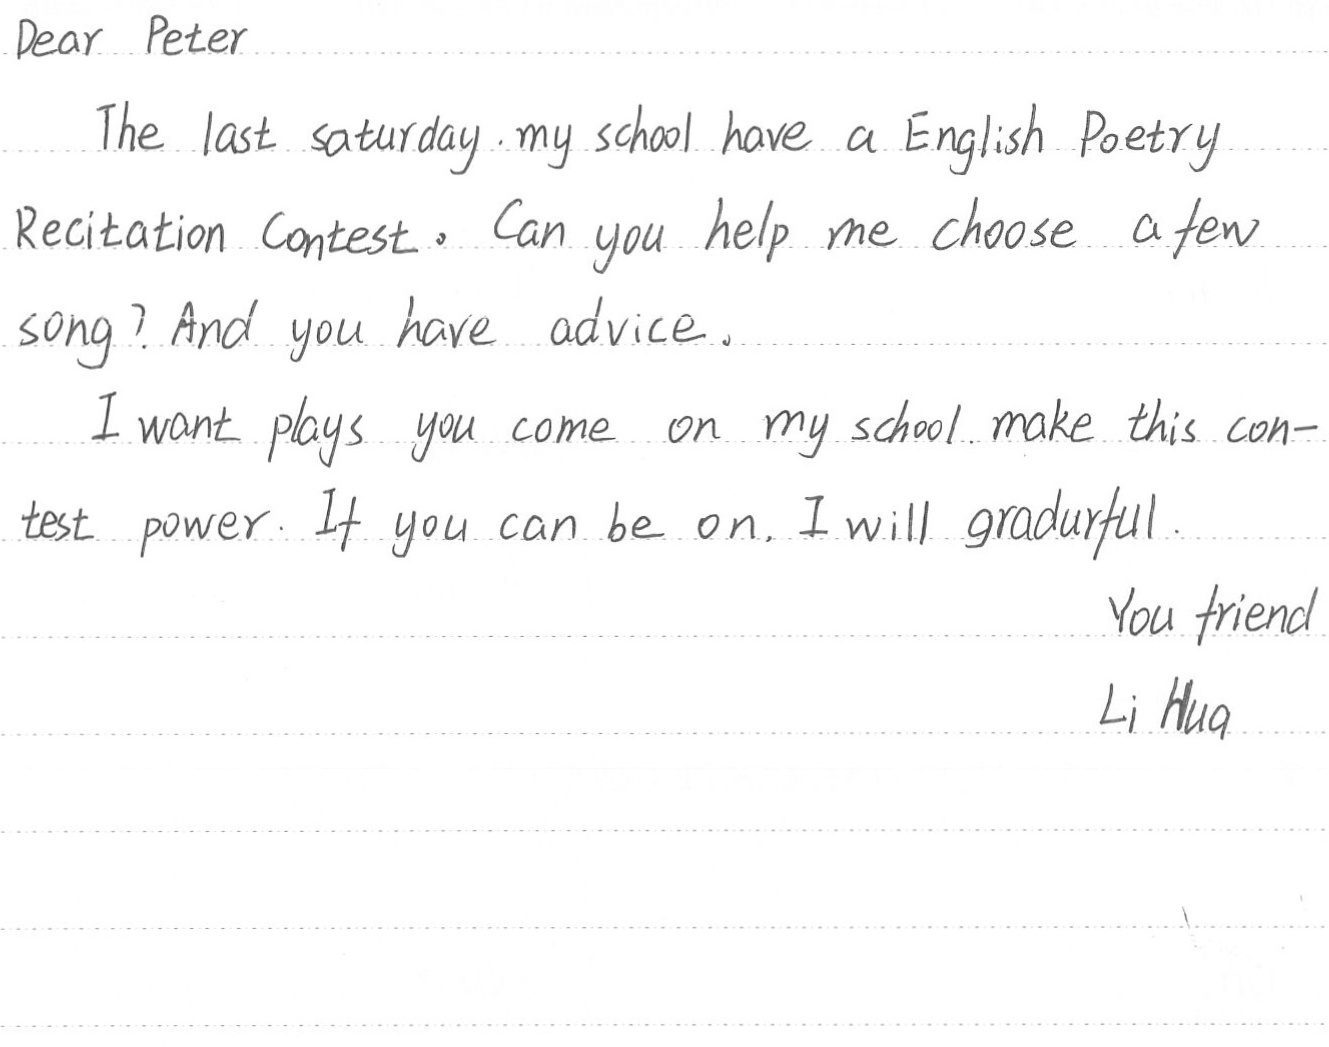 Dear Peter
The last saturday. my school have a English Poetry
Recitation Contest. Can you help me choose a few
song? And you have advice.
I want plays you come on my school make this con-
test power. If you can be on, I will gradurful.
You friend
Li Hua